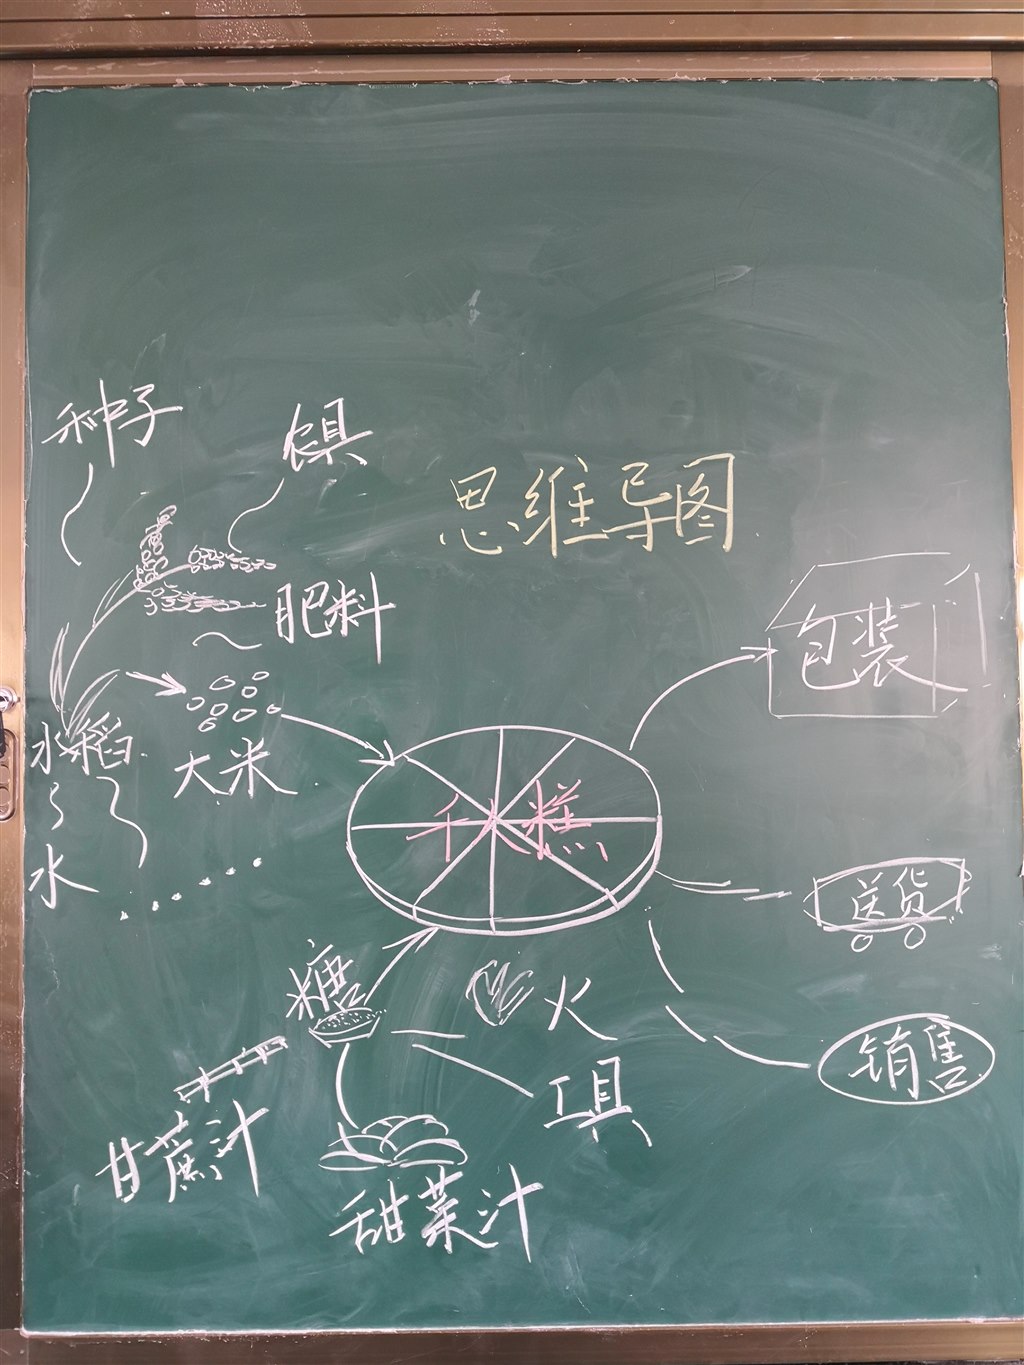 种子
农具
思维导图
肥料
包装
水稻
大米
千人糕
水
送货
糖
火
销售
工具
甘蔗汁
甜菜汁